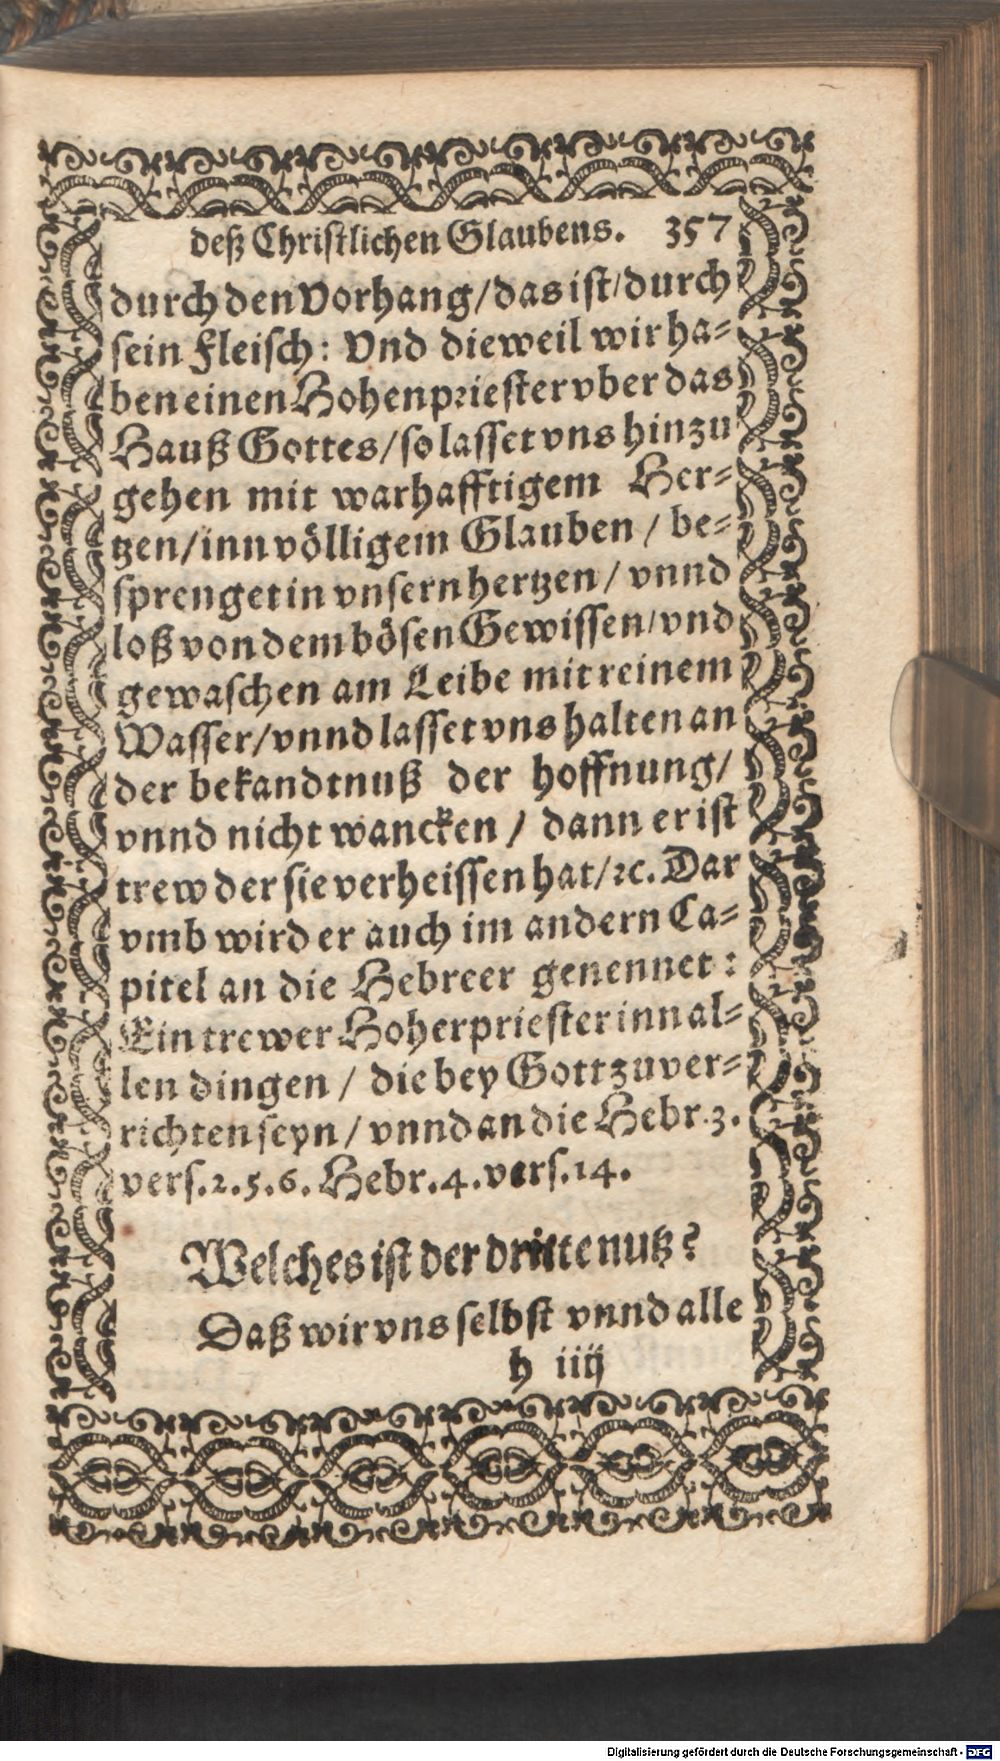 deß Christlichen Glaubens. 357
durch den Vorhang/das ist/durch
sein Fleisch: Vnd dieweil wir ha-
ben einen Hohenpriester vber das
Hauß Gottes/so lasset vns hinzu
gehen mit warhafftigem Her-
tzen/inn völligem Glauben / be-
sprenget in vnsern hertzen / vnnd
loß von dem bösen Gewissen/vnd
gewaschen am Leibe mit reinem
Wasser/vnnd lasset vns halten an
der bekandtnuß der hoffnung/
vnnd nicht wancken / dann er ist
trew der sie verheissen hat/ꝛc. Dar
vmb wird er auch im andern Ca-
pitel an die Hebreer genennet:
Ein trewer Hoherpriester inn al-
len dingen / die bey Gott zuver-
richten seyn / vnnd an die Hebr. 3.
vers. 2. 5. 6. Hebr. 4. vers. 14.
Welches ist der dritte nutz?
Daß wir vns selbst vnnd alle
h iiij
Digitalisierung gefördert durch die Deutsche Forschungsgemeinschaft - DFG